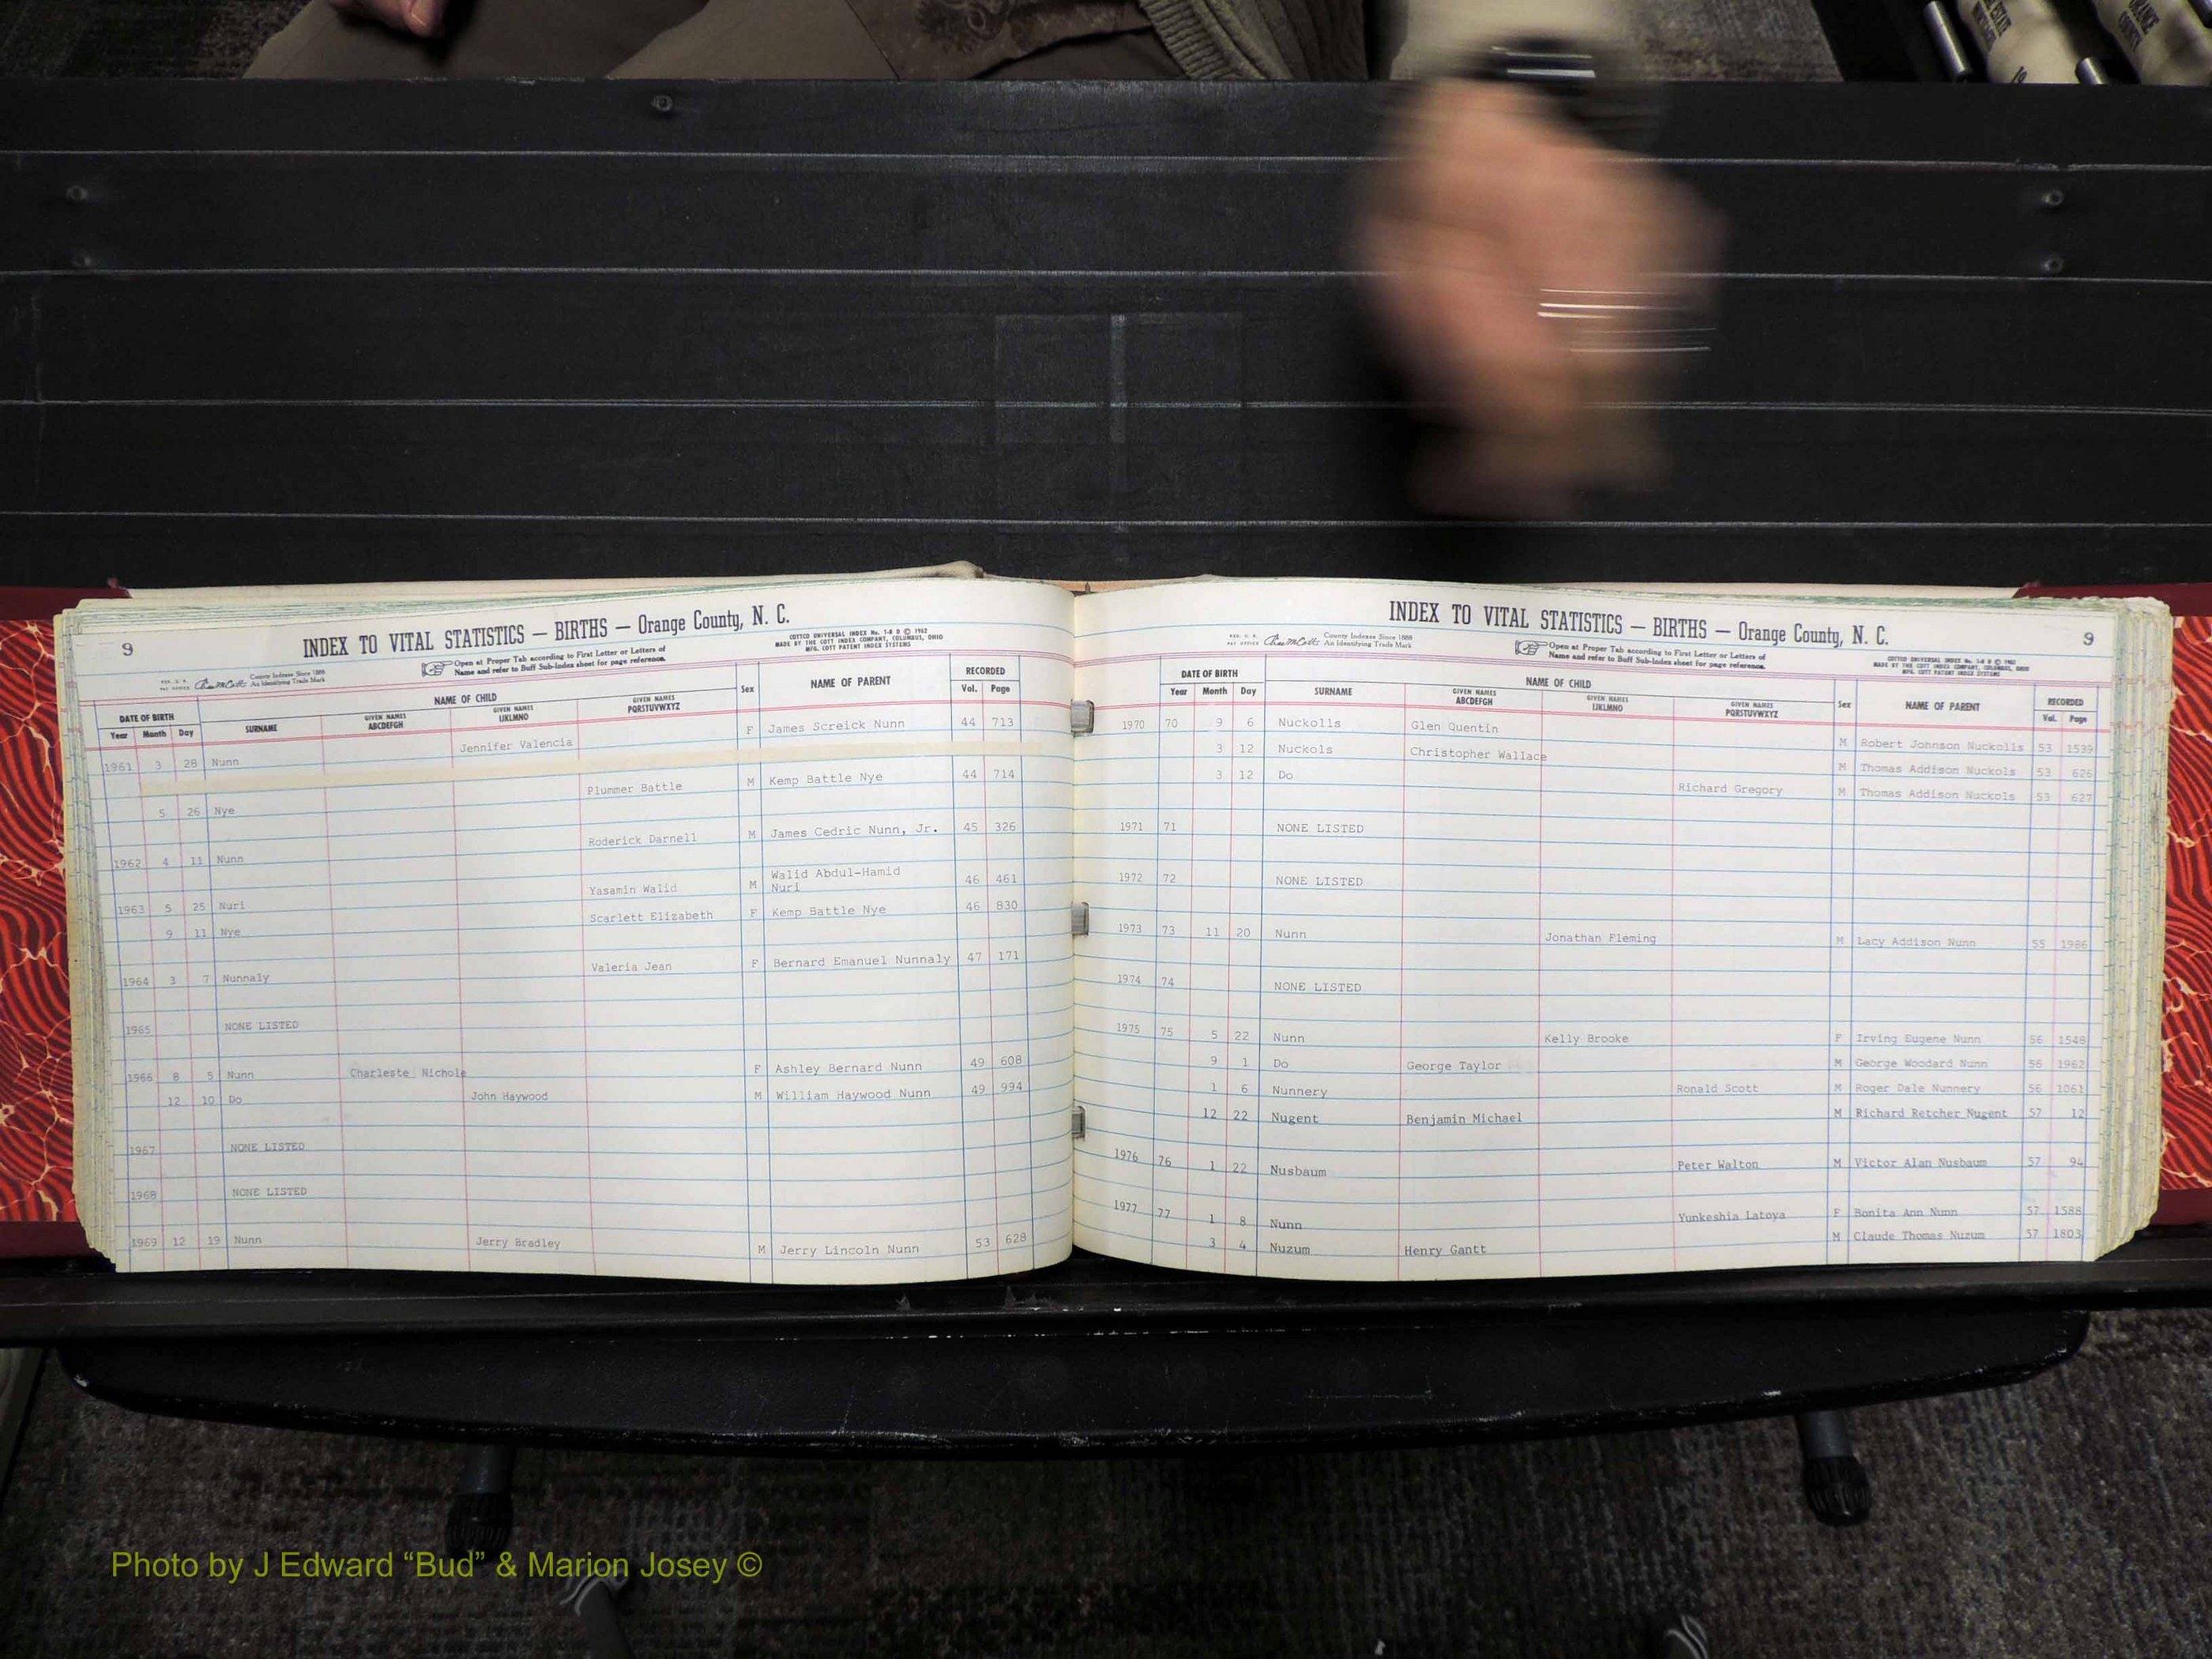 REAL ESTATE
ORANGE COUNTY
19
9
INDEX TO VITAL STATISTICS — BIRTHS — Orange County, N. C.
COTTCO UNIVERSAL INDEX No. 1-8 D © 1962
MADE BY THE COTT INDEX COMPANY, COLUMBUS, OHIO
MFG. COTT PATENT INDEX SYSTEMS
County Indexes Since 1888
An Identifying Trade Mark
Open at Proper Tab according to First Letter or Letters of
Name and refer to Buff Sub-Index sheet for page reference.
DATE OF BIRTH NAME OF CHILD Sex NAME OF PARENT RECORDED
Year Month Day SURNAME GIVEN NAMES ABCDEFGH GIVEN NAMES IJKLMNO GIVEN NAMES PQRSTUVWXYZ Vol. Page
1961 3 28 Nunn Jennifer Valencia F James Screick Nunn 44 713
5 26 Nye Plummer Battle M Kemp Battle Nye 44 714
1962 4 11 Nunn Roderick Darnell M James Cedric Nunn, Jr. 45 326
1963 5 25 Nuri Yasamin Walid M Walid Abdul-Hamid Nuri 46 461
9 11 Nye Scarlett Elizabeth F Kemp Battle Nye 46 830
1964 3 7 Nunnaly Valeria Jean F Bernard Emanuel Nunnaly 47 171
1965 NONE LISTED
1966 8 5 Nunn Charleste Nichole F Ashley Bernard Nunn 49 608
12 10 Do John Haywood M William Haywood Nunn 49 994
1967 NONE LISTED
1968 NONE LISTED
1969 12 19 Nunn Jerry Bradley M Jerry Lincoln Nunn 53 628
INDEX TO VITAL STATISTICS — BIRTHS — Orange County, N. C.
9
REG. U. S.
PAT OFFICE
County Indexes Since 1888
An Identifying Trade Mark
Open at Proper Tab according to First Letter or Letters of
Name and refer to Buff Sub-Index sheet for page reference.
COTTCO UNIVERSAL INDEX No. 1-8 D © 1962
MADE BY THE COTT INDEX COMPANY, COLUMBUS, OHIO
MFG. COTT PATENT INDEX SYSTEMS
DATE OF BIRTH NAME OF CHILD Sex NAME OF PARENT RECORDED
Year Month Day SURNAME GIVEN NAMES ABCDEFGH GIVEN NAMES IJKLMNO GIVEN NAMES PQRSTUVWXYZ Vol. Page
1970 70 9 6 Nuckolls Glen Quentin M Robert Johnson Nuckolls 53 1539
3 12 Nuckols Christopher Wallace M Thomas Addison Nuckols 53 626
3 12 Do Richard Gregory M Thomas Addison Nuckols 53 627
1971 71 NONE LISTED
1972 72 NONE LISTED
1973 73 11 20 Nunn Jonathan Fleming M Lacy Addison Nunn 55 1986
1974 74 NONE LISTED
1975 75 5 22 Nunn Kelly Brooke F Irving Eugene Nunn 56 1548
9 1 Do George Taylor M George Woodard Nunn 56 1962
1 6 Nunnery Ronald Scott M Roger Dale Nunnery 56 1061
12 22 Nugent Benjamin Michael M Richard Retcher Nugent 57 12
1976 76 1 22 Nusbaum Peter Walton M Victor Alan Nusbaum 57 94
1977 77 1 8 Nunn Yunkeshia Latoya F Bonita Ann Nunn 57 1588
3 4 Nuzum Henry Gantt M Claude Thomas Nuzum 57 1803
Photo by J Edward “Bud” & Marion Josey ©